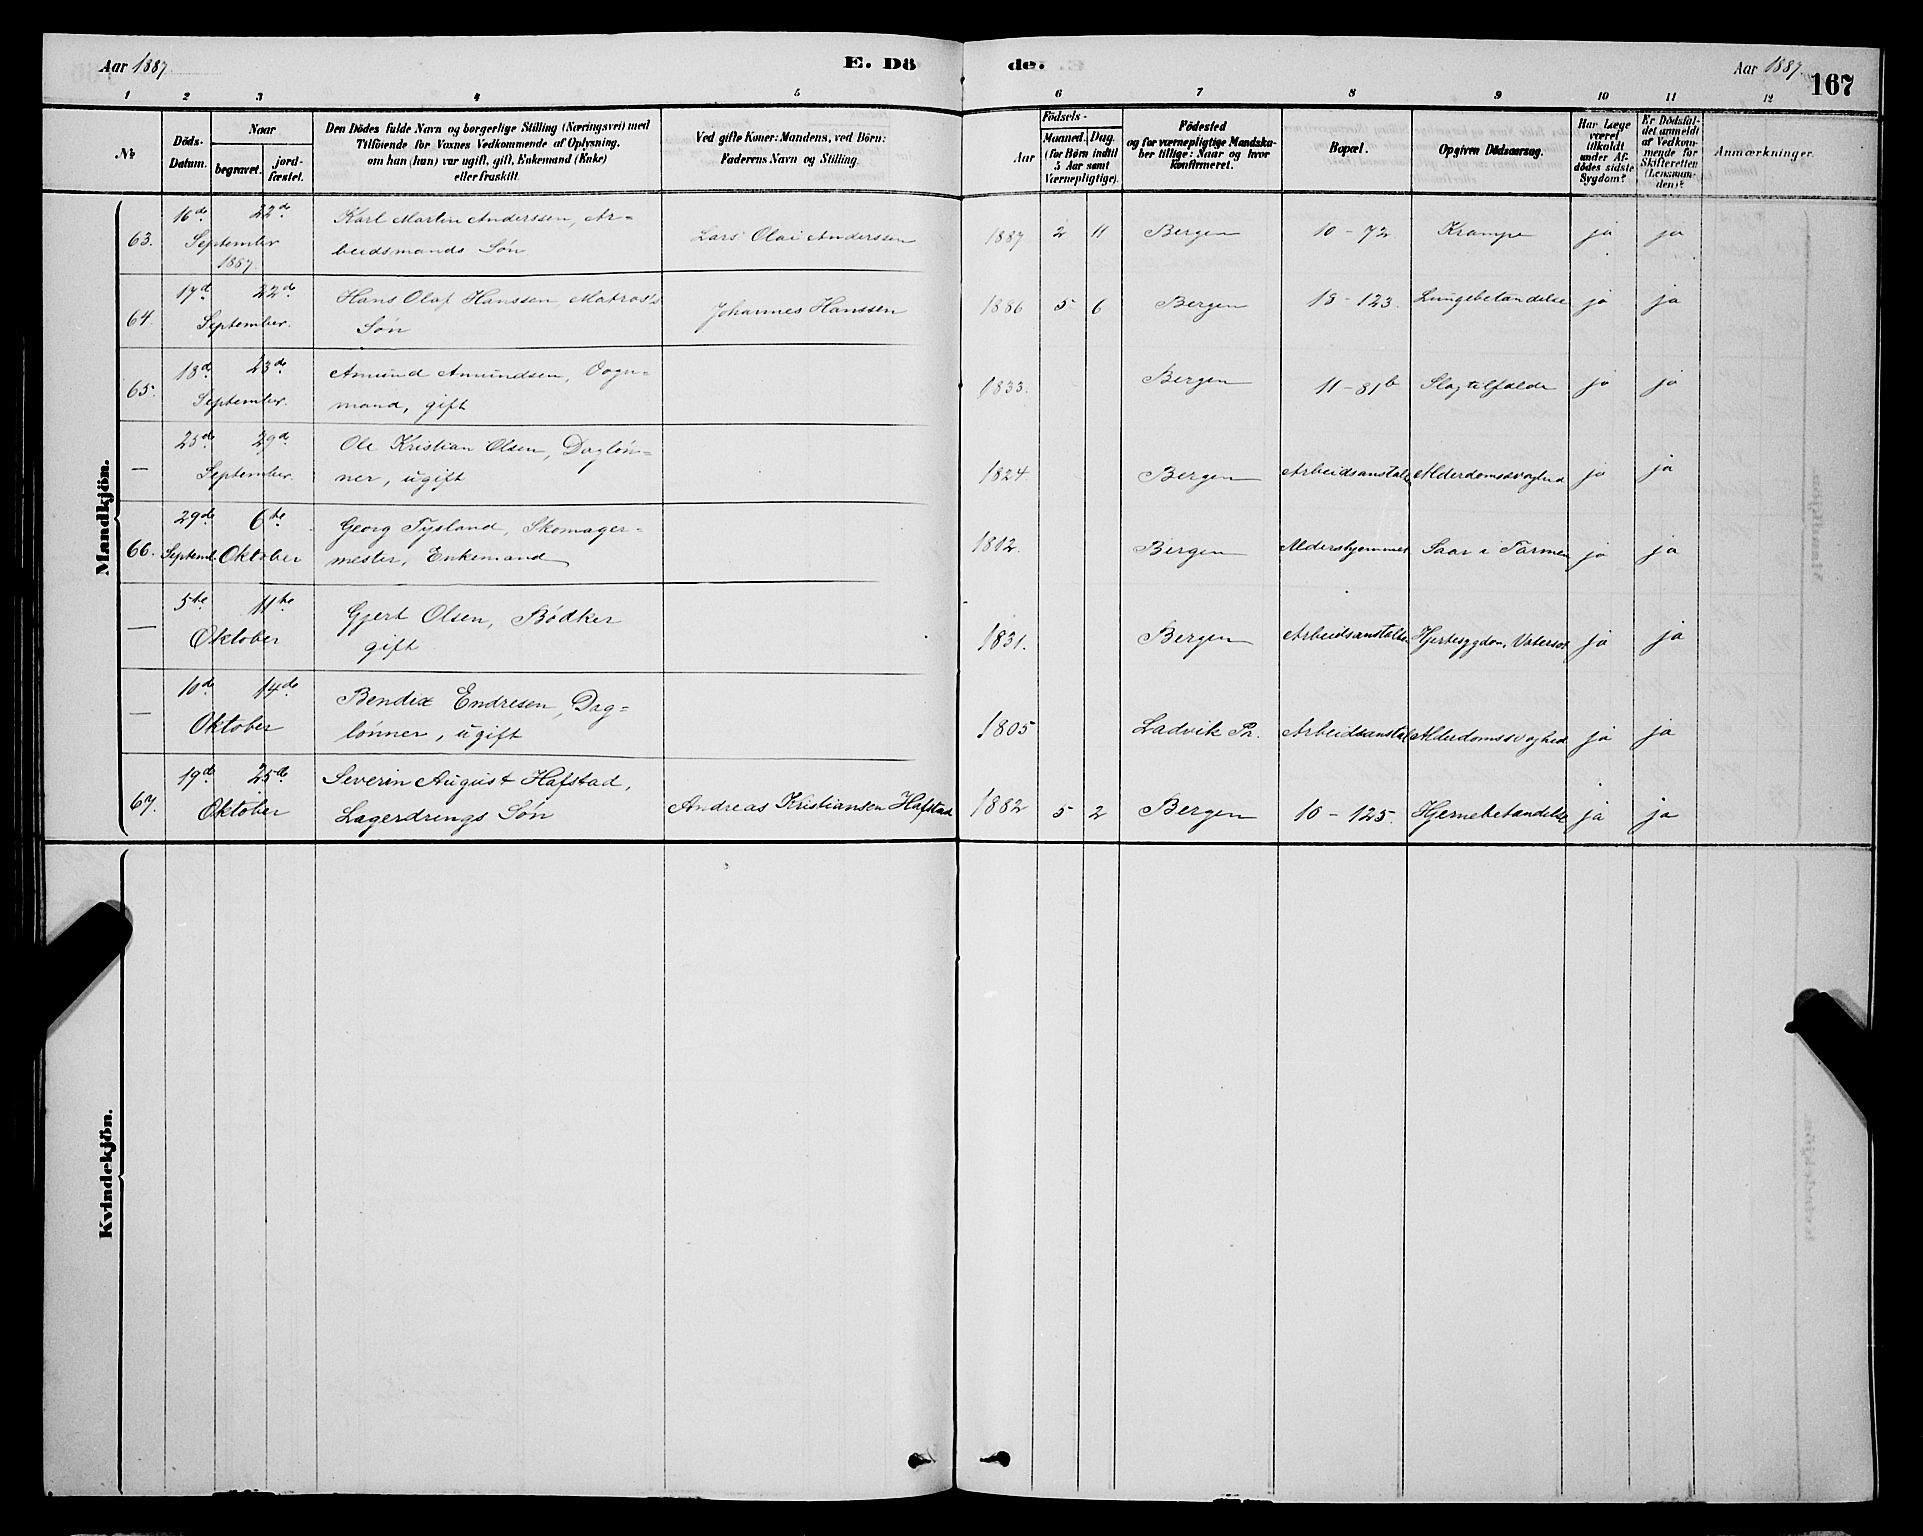 Aar 1887
E. Dö
de.
Aar 1887.
167
1 2 3 4 5 6 7 8 9 10 11 12
№
Döds-
Datum.
Naar
begravet.
jord-
fæstet.
Den Dödes fulde Navn og borgerlige Stilling (Næringsvei) med
Tilföiende for Voxnes Vedkommende af Oplysning,
om han (hun) var ugift, gift, Enkemand (Enke)
eller fraskilt.
Ved gifte Koner: Mandens, ved Börn:
Faderens Navn og Stilling.
Födsels-
Aar
Maaned.
Dag.
(for Börn indtil
5 Aar samt
Værnepligtige).
Födested
og for værnepligtige Mandska-
ber tillige: Naar og hvor
konfirmeret.
Bopæl.
Opgiven Dödsaarsag.
Har Læge
været
tilkaldt
under Af-
dödes sidste
Sygdom?
Er Dödsfal-
det anmeldt
af Vedkom-
mende for
Skifteretten
(Lensman-
den)?
Anmærkninger.
Mandkjön.
63. 16de 22de Karl Martin Anderssen, Ar-
September beidsmands Søn Lars Olai Anderssen 1887 2 11 Bergen 10 - 72 Krampe ja ja
1887.
64. 17d 22de Hans Olaf Hanssen Matros's
September. Søn Johannes Hanssen 1886 5 6 Bergen 13 - 123. Lungebetændelse ja ja
65. 18d 23de Amund Amundsen, Vogn-
September. mand, gift 1833. Bergen 11 - 81b Slagtilfælde ja ja
— 25de 29d Ole Kristian Olsen, Dagløn-
September. ner, ugift 1824 Bergen Arbeidsanstalten Alderdomssvaghed ja ja
66. 29de 6te Georg Tysland, Skomager-
Septemb. Oktober mester, Enkemand 1812. Bergen Aldershjemmet Saar i Tarmen ja ja
— 5te 11te Gjert Olsen, Bødker
Oktober gift 1831. Bergen Arbeidsanstalten Hjertesygdom, Vatersot ja ja
— 10de 14de Bendix Endresen, Dag-
Oktober lønner, ugift 1805 Ladvik Pr. Arbeidsanstal Alderdomssvaghed ja ja
67. 19d 25de Severin August Hafstad,
Oktober Lagerdrengs Søn Andreas Kristiansen Hafstad 1882 5 2 Bergen 10 - 125. Hjernebetændelse ja ja
Kvindekjön.